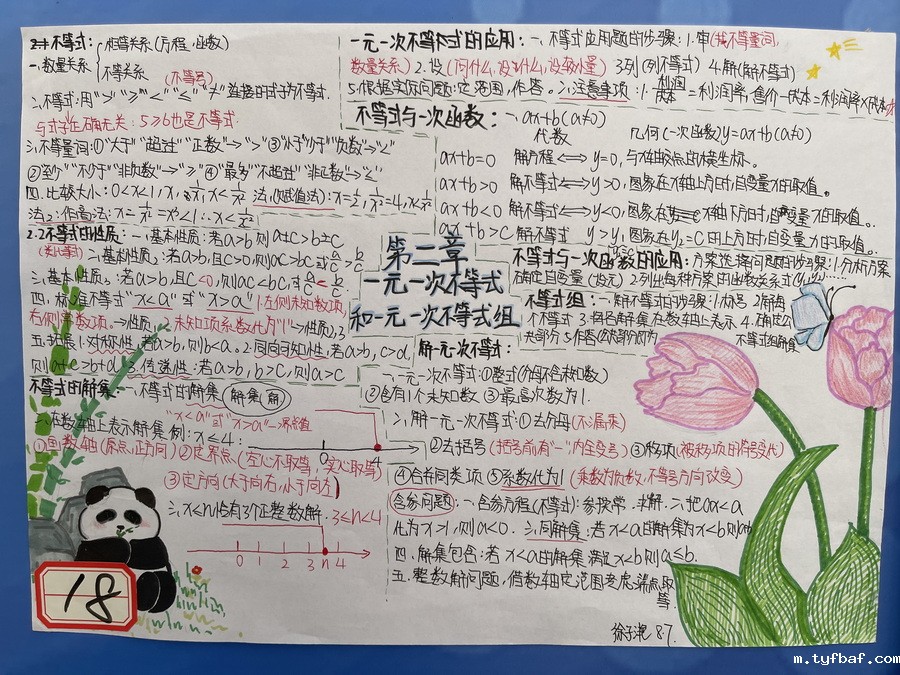 2.1不等式: 相等关系(方程、函数)
一、数量关系
不等关系 (不等号)
二、不等式:用">""≥""<""≤""≠"连接的式子为不等式.
与式子正确无关:5≥6也是不等式.
三、不等量词:①"大于""超过""正数"→">"③"小于""少于""负数"→"<"
②"至少""不少于""非负数"→"≥"④"最多""不超过""非正数"→"≤"
四、比较大小:0<x<1,x,
法1(赋值法):x=1/2,
法2:作商法:
2.2不等式的性质:一、基本性质1:若a>b则a±c>b±c
二、基本性质2:若a>b,且c>0,则ac>bc或a/c>b/c
三、基本性质3:若a>b,且c<0,则ac<bc,或a/c<b/c
四、标准不等式"x<a"或"x>a"1.左侧未知数项,
右侧常数项.→性质1 2.未知项系数化为"1"→性质2,3
五、拓展:1.对称性:若a>b,则b<a。2.同向可加性:若a>b,c>d,
则a+c>b+d 3.传递性:若a>b,b>c,则a>c
不等式的解集:一、不等式的解集(解集(解))
"x<a"或"x>a"→界点值
二、在数轴上表示解集 例:x≤4:
0 4
①画数轴(原点,正方向)②定界点(空心不取等,实心取等)
③定方向(大于向右,小于向左)
三、x<n恰有3个正整数解. 3≤n<4
0 1 2 3 n 4
18
第二章
一元一次不等式
和一元一次不等式组
一元一次不等式的应用:一、不等式应用题的步骤:1.审(找不等量词,
数量关系)2.设(问什么,设什么,设较小量)3.列(列不等式)4.解(解不等式)
5.根据实际问题:定范围,作答。二、注意事项:1.利润/成本=利润率,售价-成本=利润率×成本
不等式与一次函数:一、ax+b(a≠0)
代数 几何(一次函数)y=ax+b(a≠0)
ax+b=0 解方程⟺y=0,与x轴交点的横坐标。
ax+b>0 解不等式⟺y>0,图象在x轴上方时,自变量x的取值。
ax+b<0 解不等式⟺y<0,图象在x轴下方时,自变量x的取值。
ax+b>c 解不等式 y>y₂,图象在y₂=c的上方时,自变量x的取值。
不等式与一次函数的应用:方案选择问题的步骤:1.分析方案
确定自变量(设元) 2.列出每种方案的函数关系式
不等式组:一、解不等式的步骤:1.标号 2.解每
个不等式 3.将各解集在数轴上表示 4.确定公
共部分 5.作答(公共部分即为
不等式组解集)
解一元一次不等式:
一、一元一次不等式:①整式(分母不含未知数)
②含有1个未知数 ③最高次数为1.
二、解一元一次不等式:①去分母(不漏乘)
②去括号(括号前有"-"内住变号)③移项(被移项的符号变化)
④合并同类项 ⑤系数化为1(乘数为负数,不等号方向改变)
含参问题:一、含参方程(不等式):参按常,求解.二、把ax<a
化为x>1,则a<0. 三、同解集:若x<a的解集为x<b则a=b
四、解集包含:若x<a的解集满足x<b则a≤b.
五、整数解问题,借数轴定范围考虑端点取
等.
8.7.
m.tyfbaf.com